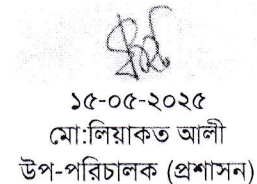 ১৫-০৫-২০২৫
মো:লিয়াকত আলী
উপ-পরিচালক (প্রশাসন)